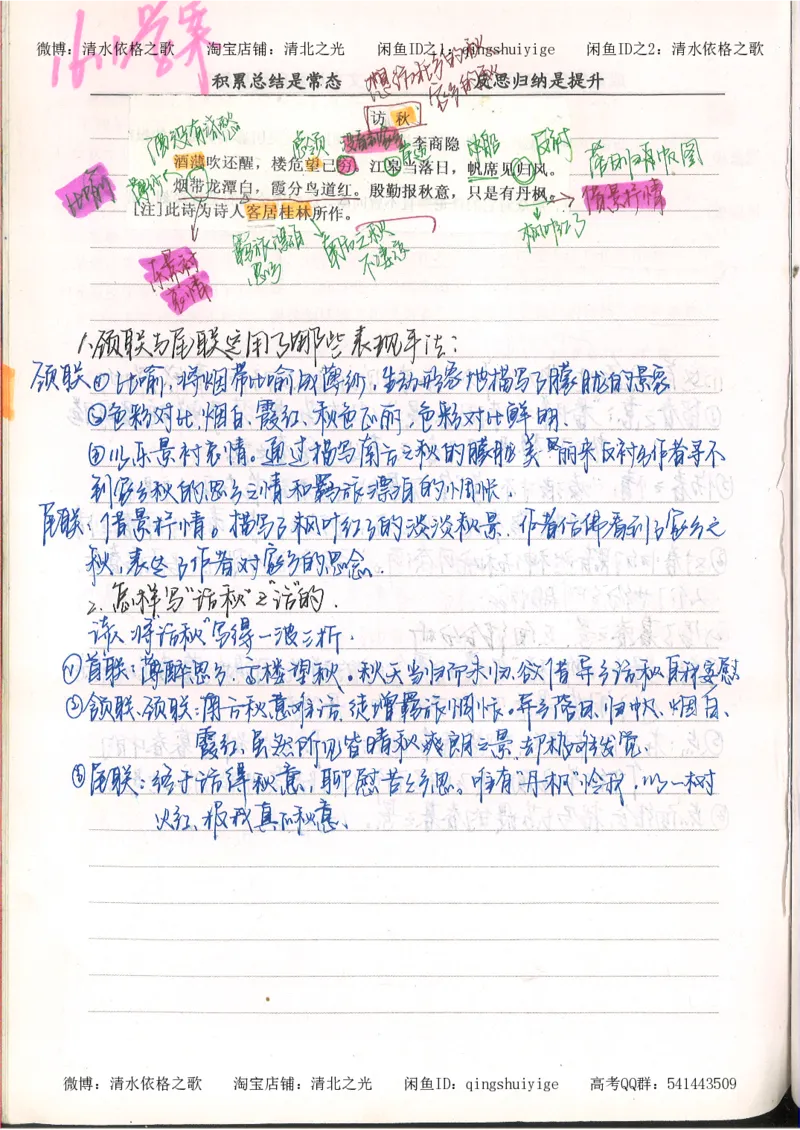 微博：清水依格之歌 淘宝店铺：清北之光 闲鱼ID之1：qingshuiyige 闲鱼ID之2：清水依格之歌
积累总结是常态 反思归纳是提升
想访故乡的秋
家乡的秋
访秋
李商隐
酒没有减愁
点领
没看到家乡
乘船
反衬
落日归帆图
酒薄吹还醒，楼危望已穷。江皋当落日，帆席见归风。
烟带龙潭白，霞分鸟道红。殷勤报秋意，只是有丹枫。
[注]此诗为诗人客居桂林所作。
比喻
借景抒情
枫叶红了
乐景衬
哀情
羁旅漂泊
思乡
南方之秋
不凄凉
1、颔联与尾联运用了哪些表现手法：
颔联①比喻，将烟带比喻成薄纱，生动形象地描写了朦胧的景象
②色彩对比，烟白、霞红、秋色正丽，色彩对比鲜明.
③以乐景衬哀情。通过描写南方之秋的朦胧美丽来反衬出作者寻不
到家乡秋的思乡之情和羁旅漂泊的惆怅.
尾联：借景抒情。描写了枫叶红了的淡淡秋景，作者仿佛看到了家乡之
秋，表达了作者对家乡的思念.
2、怎样写"访秋"之"访"的.
诗人将"访秋"写得一波三折.
①首联：薄醉思乡，高楼望秋。秋天当归而未归，欲借异乡访秋自我安慰
②颔联、颈联：南方秋意难访，徒增羁旅惆怅。异乡落日、归帆、烟白、
霞红，虽然所见皆晴秋爽朗之景，却极难发觉.
③尾联：终于访得秋意，聊慰苦乡思。唯有"丹枫"怜我，以一树
火红、报我真正秋意、
微博：清水依格之歌 淘宝店铺：清北之光 闲鱼ID：qingshuiyige 高考QQ群：541443509